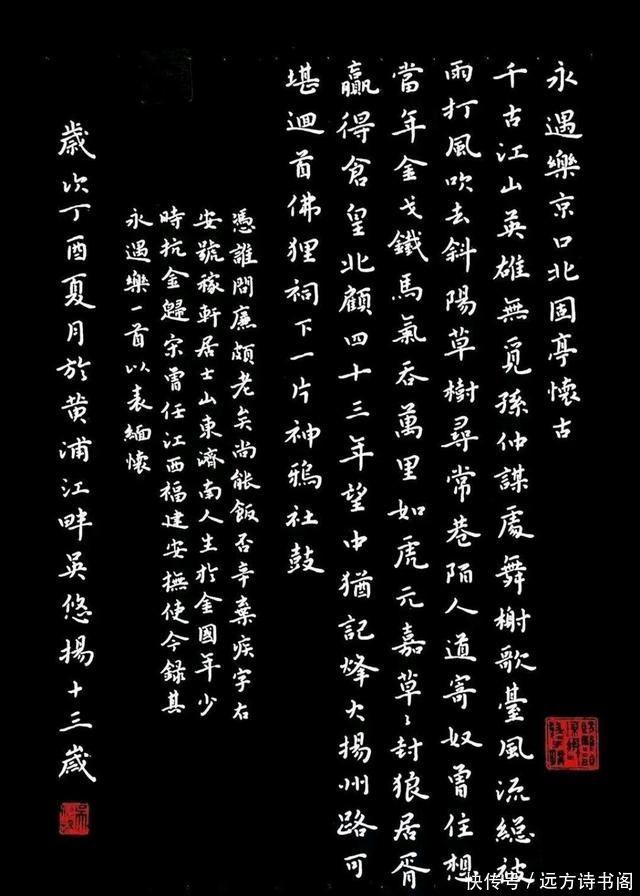 永遇樂京口北固亭懷古
千古江山英雄無覓孫仲謀處舞榭歌臺風流總被
雨打風吹去斜陽草樹尋常巷陌人道寄奴曾住想
當年金戈鐵馬氣吞萬里如虎元嘉草〻封狼居胥
贏得倉皇北顧四十三年望中猶記烽火揚州路可
堪迴首佛狸祠下一片神鴉社鼓
憑誰問廉頗老矣尚能飯否辛棄疾字右
安號稼軒居士山東濟南人生於金國年少
時抗金歸宋曾任江西福建安撫使今錄其
永遇樂一首以表緬懷
歲次丁酉夏月於黄浦江畔吳悠揚十三歲
快传号/远方诗书阁